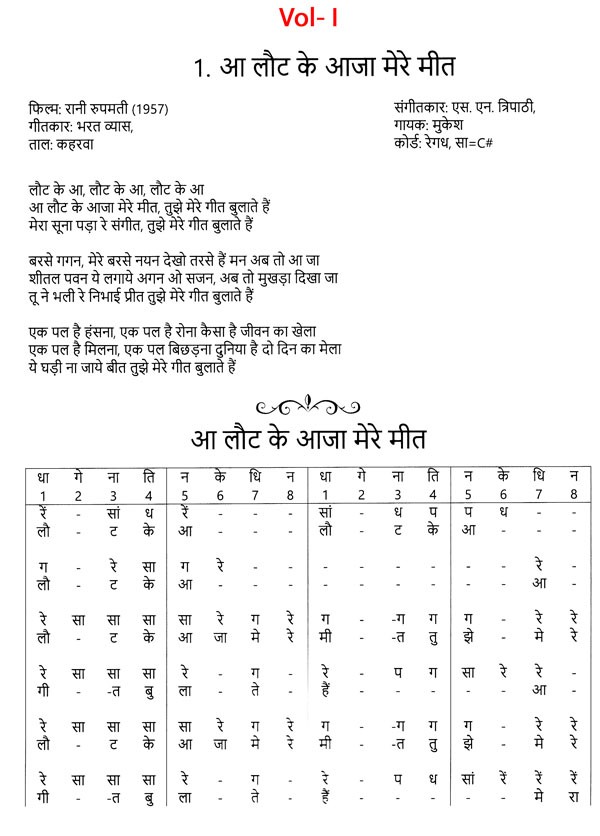 Vol- I
1. आ लौट के आजा मेरे मीत
फिल्म: रानी रुपमती (1957)
गीतकार: भरत व्यास,
ताल: कहरवा
संगीतकार: एस. एन. त्रिपाठी,
गायक: मुकेश
कोर्ड: रेगध, सा=C#
लौट के आ, लौट के आ, लौट के आ
आ लौट के आजा मेरे मीत, तुझे मेरे गीत बुलाते हैं
मेरा सूना पड़ा रे संगीत, तुझे मेरे गीत बुलाते हैं
बरसे गगन, मेरे बरसे नयन देखो तरसे हैं मन अब तो आ जा
शीतल पवन ये लगाये अगन ओ सजन, अब तो मुखड़ा दिखा जा
तू ने भली रे निभाई प्रीत तुझे मेरे गीत बुलाते हैं
एक पल है हंसना, एक पल है रोना कैसा है जीवन का खेला
एक पल है मिलना, एक पल बिछड़ना दुनिया है दो दिन का मेला
ये घड़ी ना जाये बीत तुझे मेरे गीत बुलाते हैं
आ लौट के आजा मेरे मीत
धा गे ना ति न के धि न धा गे ना ति न के धि न
1 2 3 4 5 6 7 8 1 2 3 4 5 6 7 8
रें - सां ध रें - - - सां - ध प प ध - -
लौ - ट के आ - - - लौ - ट के आ - - -
ग - रे सा ग रे - - - - - - - - रे -
लौ - ट के आ - - - - - - - - - आ -
रे सा सा सा सा रे ग रे ग - -ग ग ग - रे रे
लौ - ट के आ जा मे रे मी - -त तु झे - मे रे
रे सा सा सा रे - ग - रे - प ग सा रे रे -
गी - -त बु ला - ते - हैं - - - - - आ -
रे सा सा सा सा रे ग रे ग - -ग ग ग - रे रे
लौ - ट के आ जा मे रे मी - -त तु झे - मे रे
रे सा सा सा रे - ग - रे - प ध सां रें रें रें
गी - -त बु ला - ते - हैं - - - - - मे रा